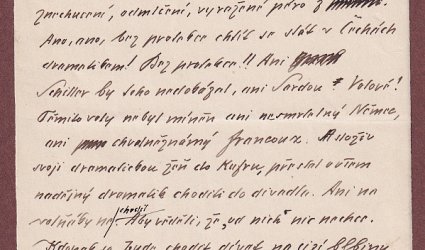 znechucení, odmlčení, vyražené péro z
Ano, ano, bez protekce chtít se stát v Čechách
dramatikem! Bez protekce!! Ani
Schiller by toho nedokázal, ani Sardou Volové!
Těmito voly nebyl míněn ani nesmrtelný Němec,
ani chudněznámý francouz. A složiv
svoji dramatickou žeň do kufru, přestal ovšem
nadějný dramatik choditi do divadla. Ani na
volňásky ne chodil Aby věděli, že „od nich“ nic nechce.
chodit dívat na cizí blbiny